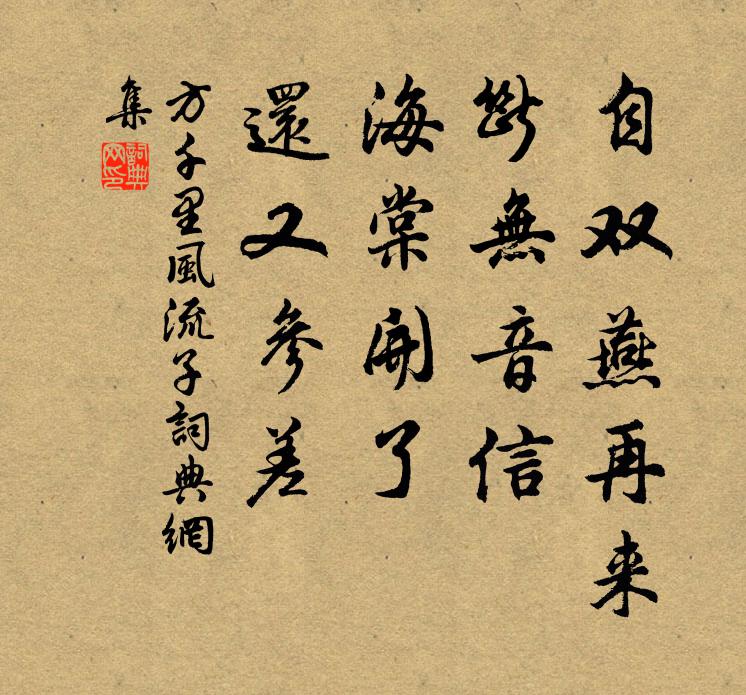 自双燕再来
断無音信
海棠開了
還又參差
方千里風流子詞典網
集
詞典网印